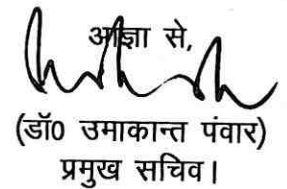 आज्ञा से,
(डॉ0 उमाकान्त पंवार)
प्रमुख सचिव।